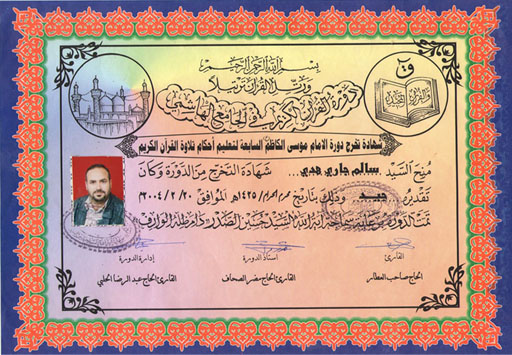 بسم الله الرحمن الرحيم
ورتل القرآن ترتيلا
دورة القرآن الكريم في الجامع الهاشمي
ق
والقرآن المجيد
شهادة تخرج دورة الامام موسى الكاظم السابعة لتعليم أحكام تلاوة القرآن الكريم
مُنِحَ السَّيِّد سالم جاري هدي ... شَهادة التخرج مِنَ الدّورَة وكانَ
تقديرُه جيد وذلك بتاريخ محرم الحرام/١٤٢٥هـ الموافق ٢٠ / ٢ / ٢٠٠٤م
تمت الدورة سماحة آية الله السيد حسين الصدر دام ظله الوارف
القارئ: استاذ الدورة إدارة الدورة
الحاج صاحب العطار القارئ الحاج مضر الصحاف القارئ الحاج عبد الرضا الحلبي